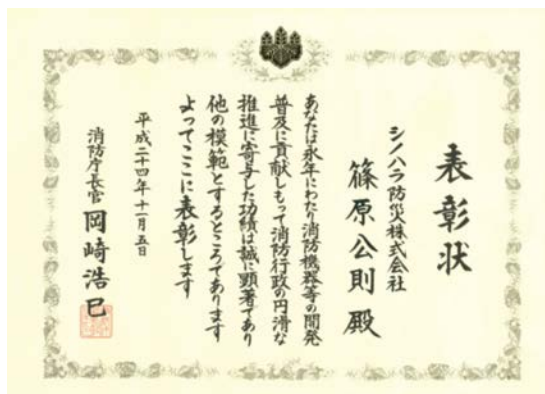 表彰状
シノハラ防災株式会社
篠原公則殿
あなたは永年にわたり消防機器等の開発
普及に貢献しもって消防行政の円滑な
推進に寄与した功績は誠に顕著であり
他の模範とするところであります
よってここに表彰します
平成二十四年十一月五日
消防庁長官 岡崎浩巳